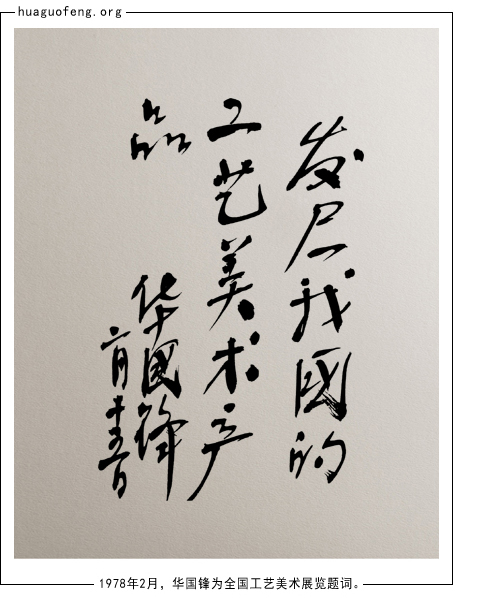 huaguofeng.org
发展我國的
工艺美术产
品
华國锋
二月十五日
1978年2月，华国锋为全国工艺美术展览题词。